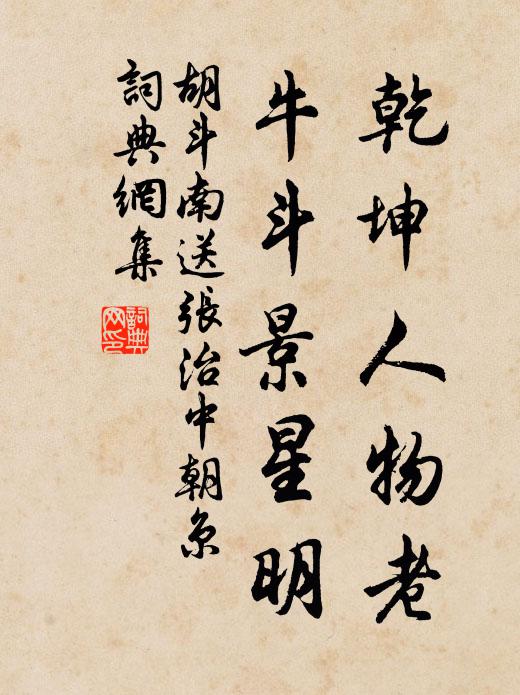 乾坤人物老
牛斗景星明
胡斗南送張治中朝京
詞典網集
詞典网印